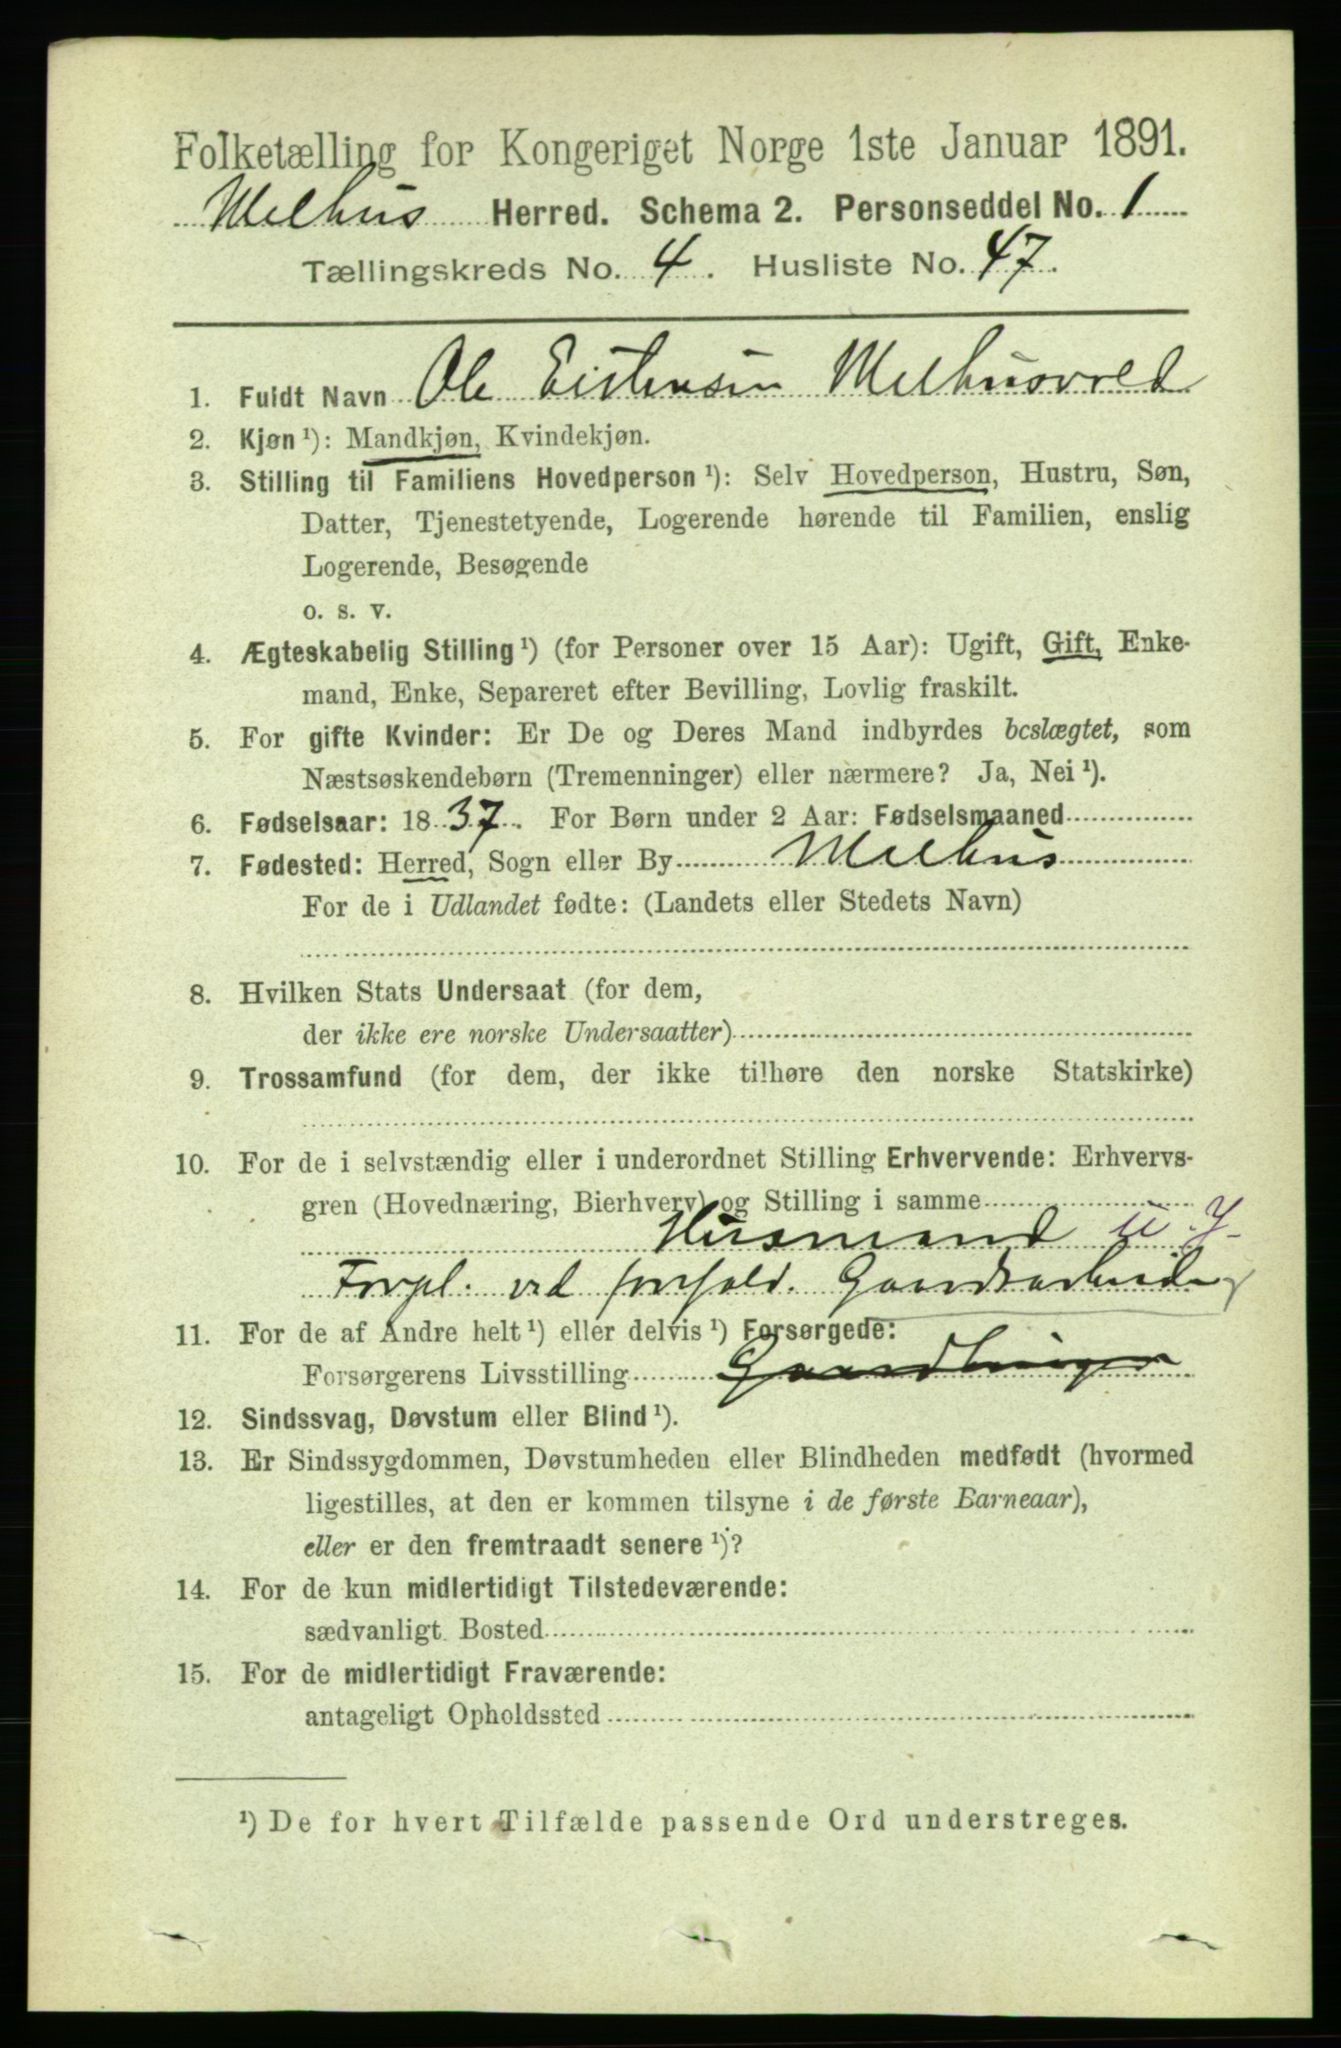 Folketælling for Kongeriget Norge 1ste Januar 1891.
Melhus Herred. Schema 2. Personseddel No. 1
Tællingskreds No. 4. Husliste No. 47.
1. Fuldt Navn Ole Eistensen Melhusvold
2. Kjøn ¹): Mandkjøn, Kvindekjøn.
3. Stilling til Familiens Hovedperson ¹): Selv Hovedperson, Hustru, Søn,
Datter, Tjenestetyende, Logerende hørende til Familien, enslig
Logerende, Besøgende
o. s. v.
4. Ægteskabelig Stilling ¹) (for Personer over 15 Aar): Ugift, Gift, Enke-
mand, Enke, Separeret efter Bevilling, Lovlig fraskilt.
5. For gifte Kvinder: Er De og Deres Mand indbyrdes beslægtet, som
Næstsøskendebørn (Tremenninger) eller nærmere? Ja, Nei ¹).
6. Fødselsaar: 1837. For Børn under 2 Aar: Fødselsmaaned
7. Fødested: Herred, Sogn eller By Melhus
For de i Udlandet fødte: (Landets eller Stedets Navn)
8. Hvilken Stats Undersaat (for dem,
der ikke ere norske Undersaatter)
9. Trossamfund (for dem, der ikke tilhøre den norske Statskirke)
10. For de i selvstændig eller i underordnet Stilling Erhvervende: Erhvervs-
gren (Hovednæring, Bierhverv) og Stilling i samme
Husmand u. J.
Forpl. ved forfald. Gaardsarbeide
11. For de af Andre helt ¹) eller delvis ¹) Forsørgede:
Forsørgerens Livsstilling Gaardbruger
12. Sindssvag, Døvstum eller Blind ¹).
13. Er Sindssygdommen, Døvstumheden eller Blindheden medfødt (hvormed
ligestilles, at den er kommen tilsyne i de første Barneaar),
eller er den fremtraadt senere ¹)?
14. For de kun midlertidigt Tilstedeværende:
sædvanligt Bosted
15. For de midlertidigt Fraværende:
antageligt Opholdssted
¹) De for hvert Tilfælde passende Ord understreges.